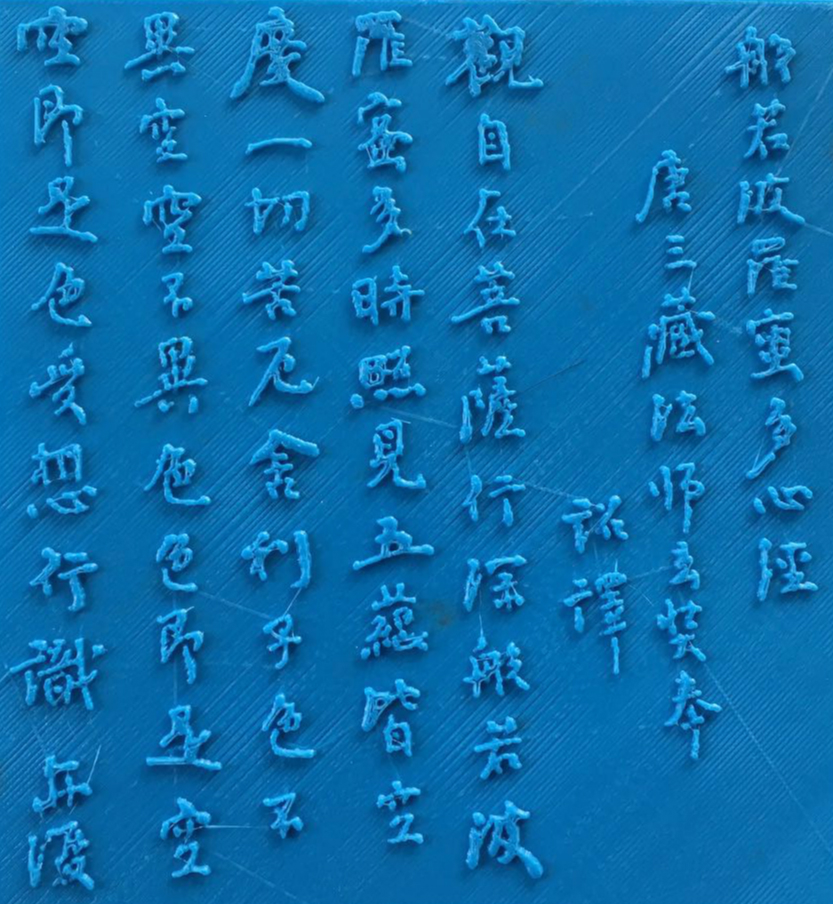 般若波羅蜜多心經
唐三藏法师玄奘奉
詔譯
觀自在菩薩行深般若波
羅蜜多時照見五蘊皆空
度一切苦厄舍利子色不
異空空不異色色即是空
空即是色受想行識亦復